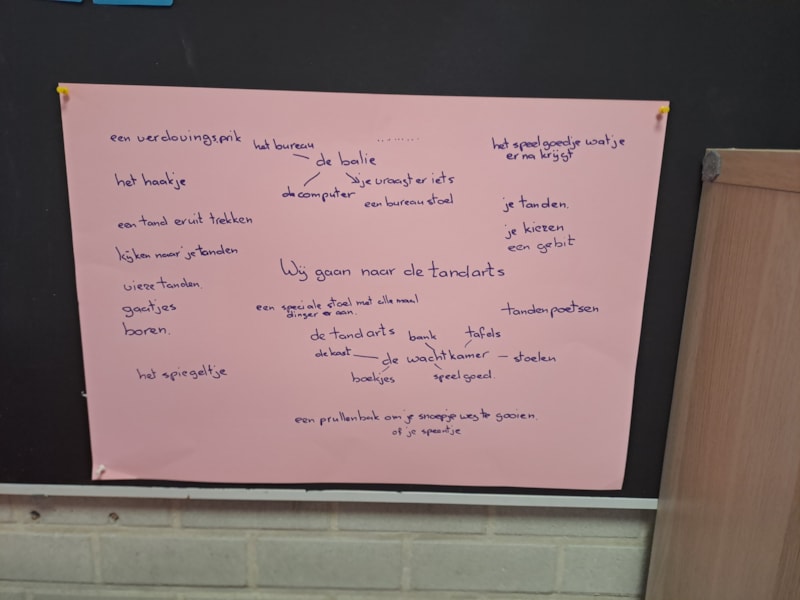 een verdovingsprik
het bureau
........
de balie
de computer
je vraagt er iets
een bureau stoel
het speelgoedje wat je
er na krijgt
het haakje
een tand eruit trekken
kijken naar je tanden
vieze tanden.
gaatjes
boren.
het spiegeltje
je tanden.
je kiezen
een gebit
Wij gaan naar de tandarts
een speciale stoel met allemaal
dingen er aan.
tandenpoetsen
de tandarts
bank
tafels
de kast
de wachtkamer
stoelen
boekjes
speelgoed.
een prullenbak om je snoepje weg te gooien.
of je speentje